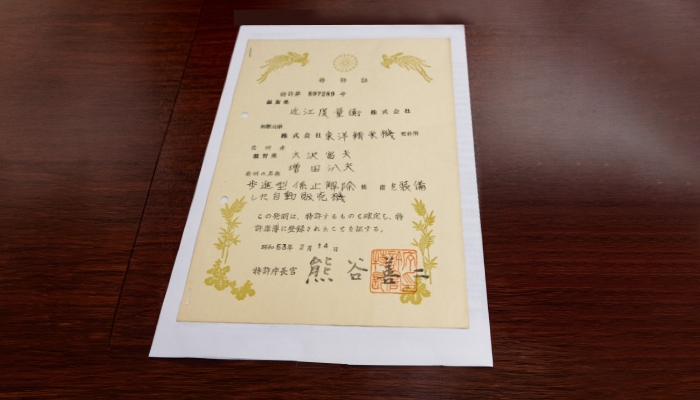 特許証
特許第 897289 号
滋賀県
近江度量衡 株式会社
和歌山県
株式会社 東洋精米機 製作所
発明者
滋賀県 大沢富夫
増田
発明の名称
歩進型係止解除機構を装備
した自動販売機
この発明は、特許するものと確定し、特
許原簿に登録されたことを証する。
昭和 53年 2月 14日
特許庁長官 熊谷善二